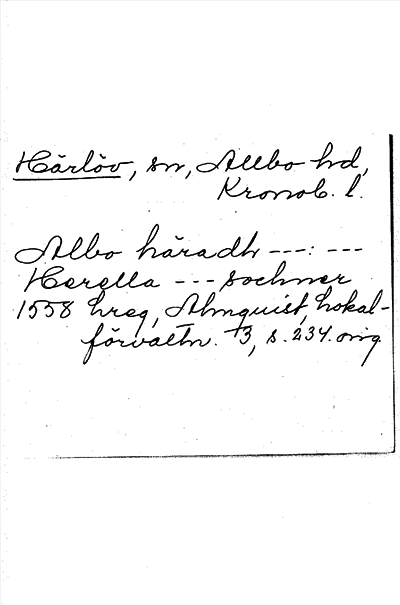 Härlöv, sn, Allbo hd,
Kronob. l.
Albo häradh ---:---
Herella --- sochner
1558 hreg, Almquist, Lokal-
förvaltn. 3, s. 234. orig